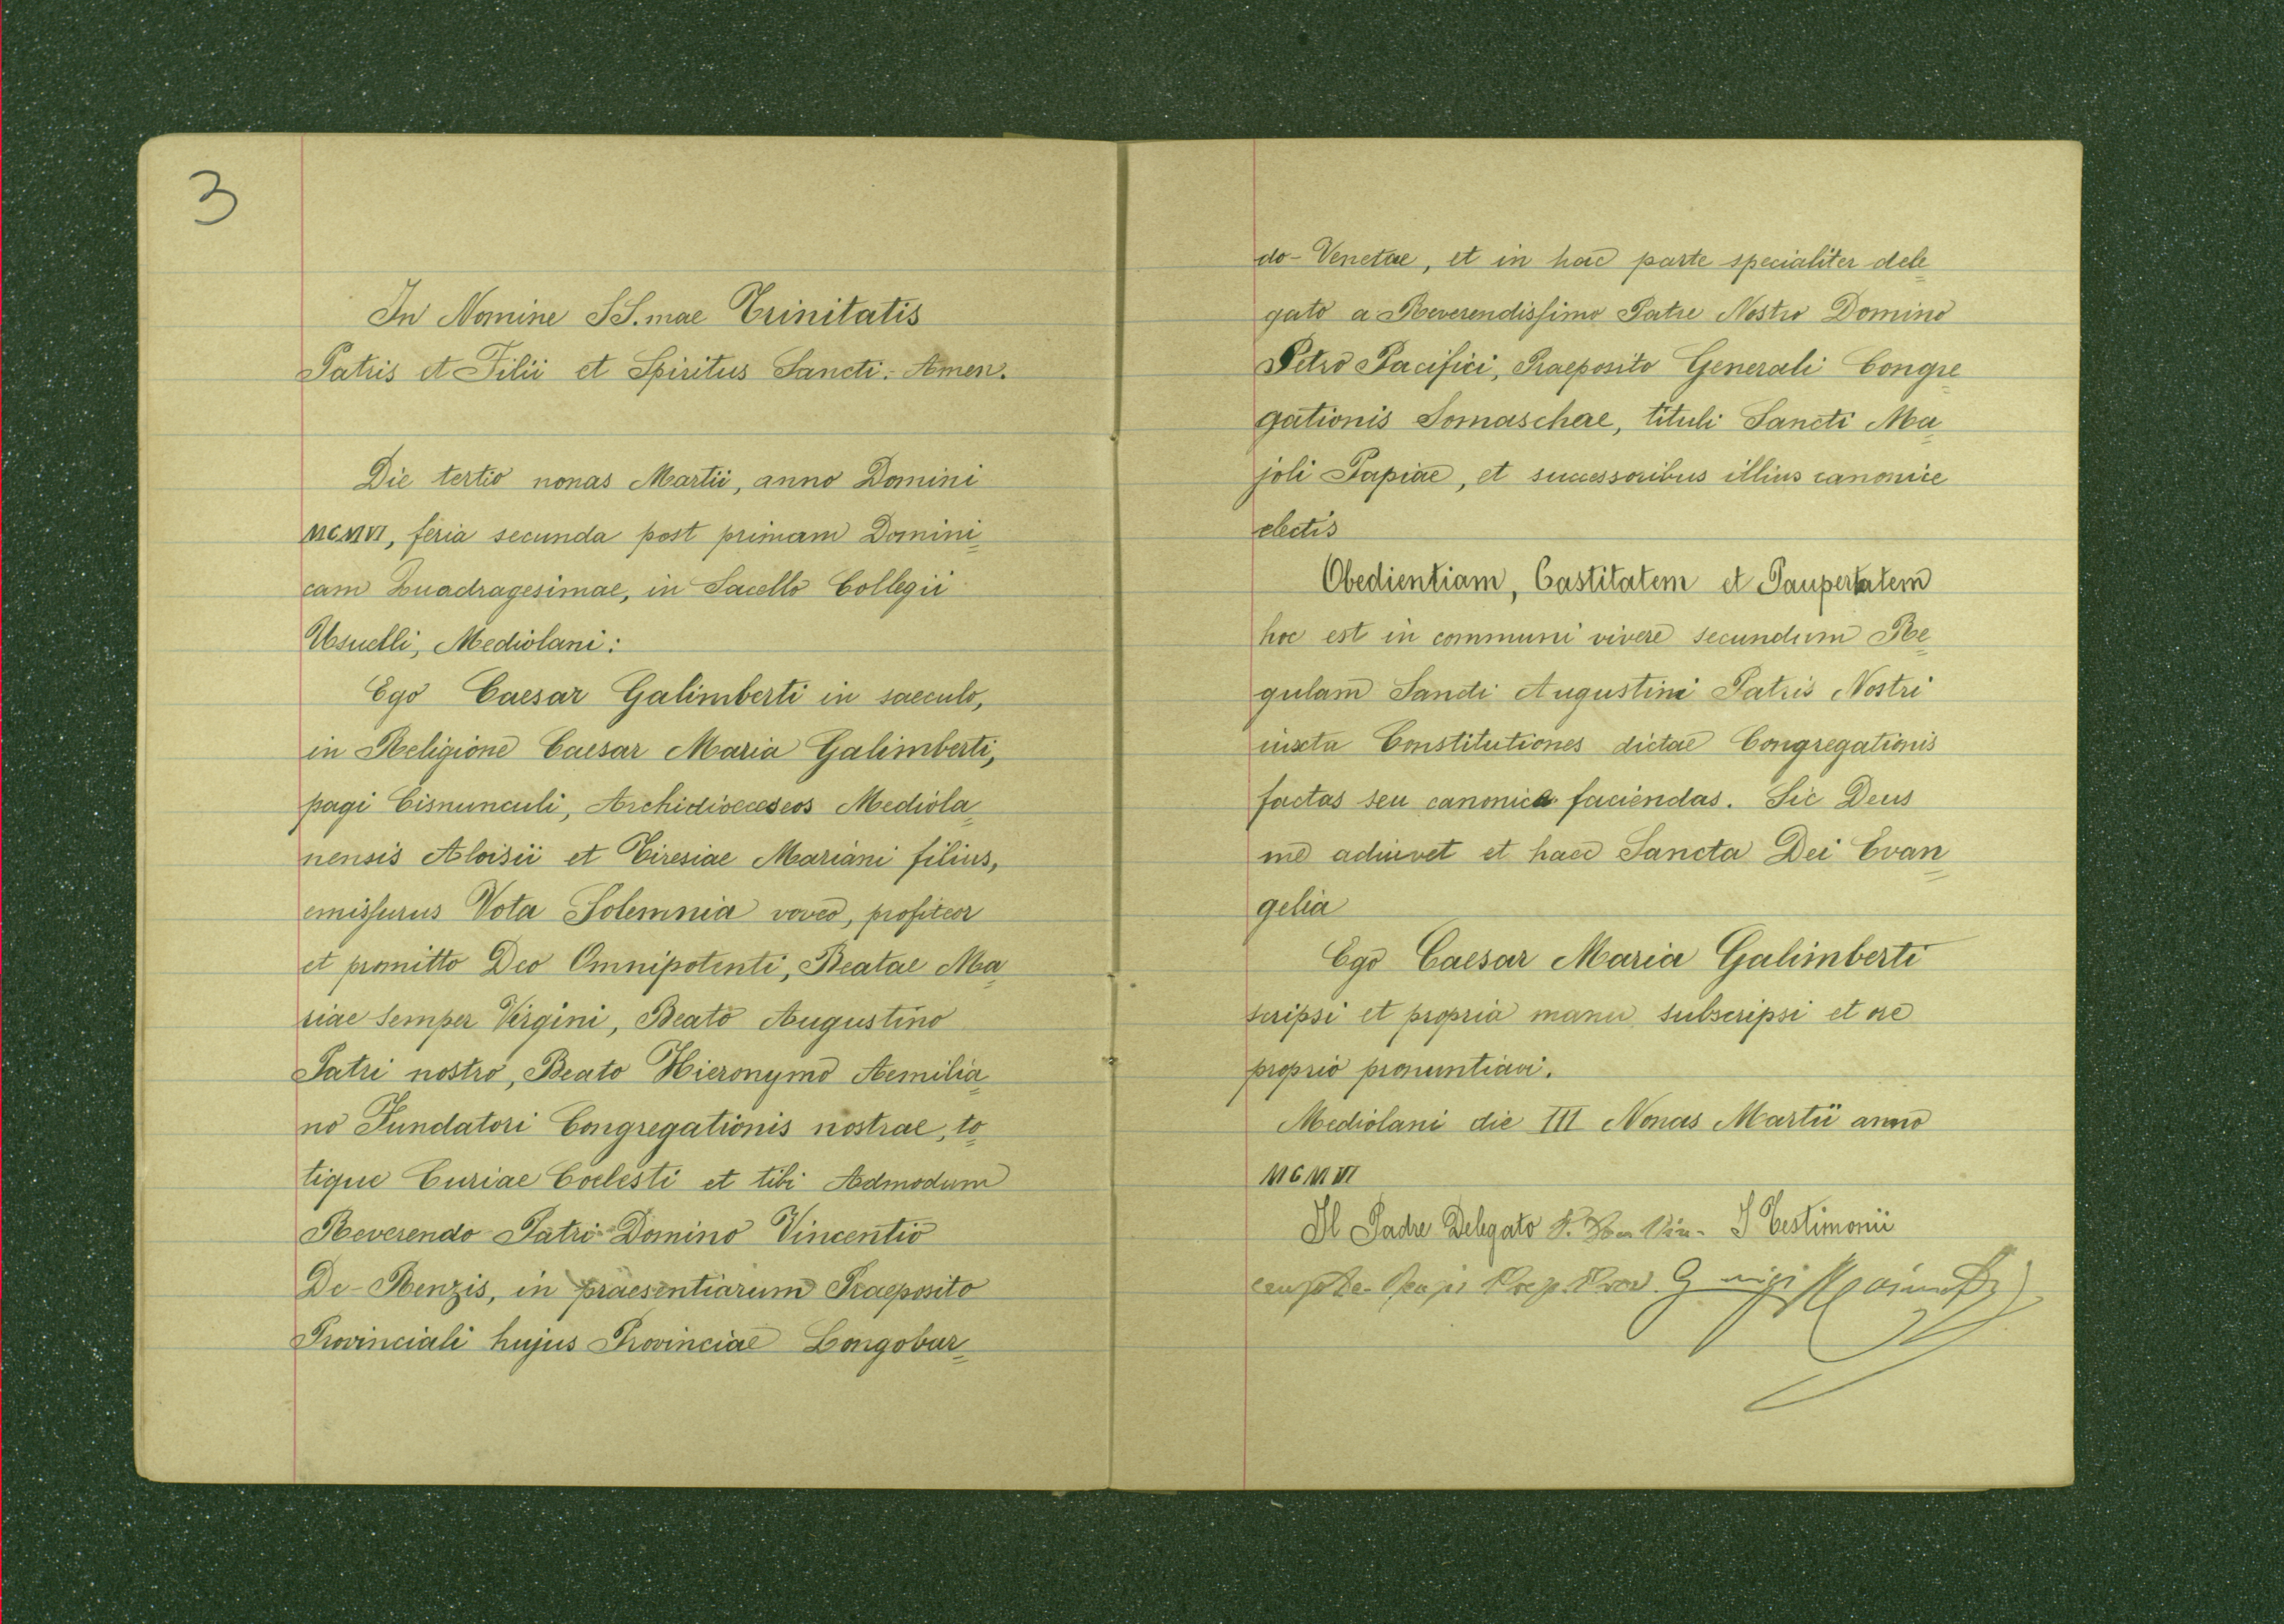 3
In Nomine SS.mae Trinitatis
Patris et Filii et Spiritus Sancti. Amen.
Die tertio nonas Martii, anno Domini
MCMVI, feria secunda post primam Domini
cam Quadragesimae, in Sacello Collegii
Usuelli, Mediolani:
Ego Caesar Galimberti in saeculo,
in Religione Caesar Maria Galimberti,
pagi Cisnunculi, Archidioeceseos Mediola
nensis Aloisii et Tiresiae Mariani filius,
emissurus Vota Solemnia voveo, profiteor
et promitto Deo Omnipotenti, Beatae Ma
riae semper Virgini, Beato Augustino
Patri nostro, Beato Hieronymo Aemilia
no Fundatori Congregationis nostrae, to
tique Curiae Coelesti et tibi Admodum
Reverendo Patri Domino Vincentio
De-Renzis, in praesentiarum Praeposito
Provinciali hujus Provinciae Longobar
do-Venetae, et in hac parte specialiter dele
gato a Reverendissimo Patre Nostro Domino
Petro Pacifici, Praeposito Generali Congre
gationis Somaschae, tituli Sancti Ma
joli Papiae, et successoribus illius canonice
electis
Obedientiam, Castitatem et Paupertatem
hoc est in communi vivere secundum Re
gulam Sancti Augustini Patris Nostri
iuxta Constitutiones dictae Congregationis
factas seu canonice faciendas. Sic Deus
me adiuvet et haec Sancta Dei Evan
gelia
Ego Caesar Maria Galimberti
scripsi et propria manu subscripsi et ore
proprio pronuntiavi.
Mediolani die III Nonas Martii anno
MCMVI
Il Padre Delegato I Testimonii